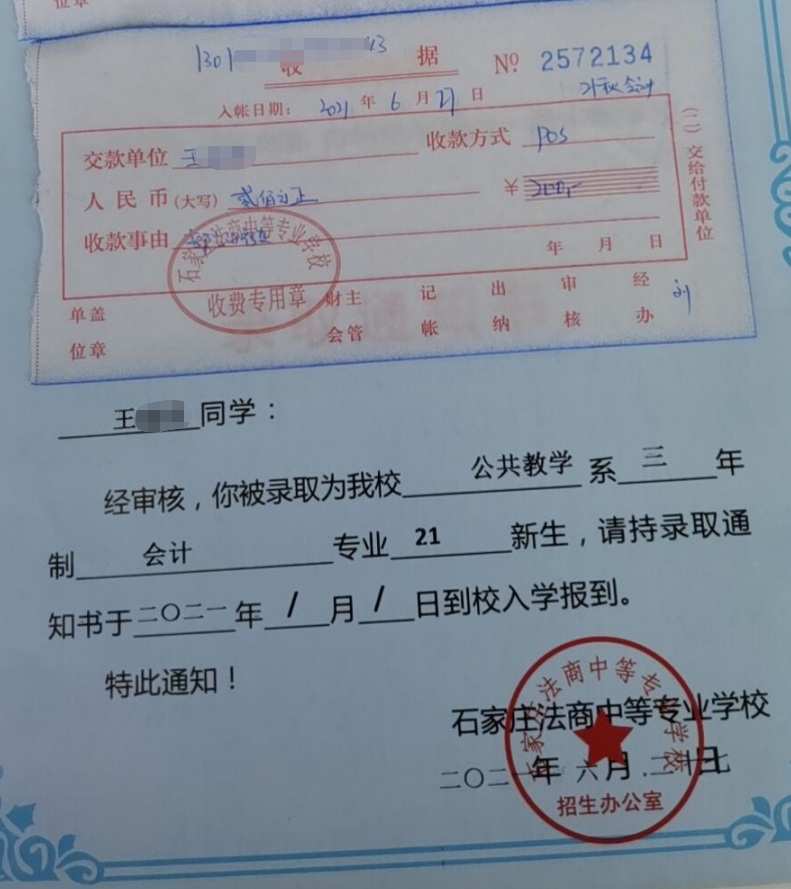 位章
1301 13
收 据 № 2572134
21秋会计
入帐日期: 2021 年 6 月 27 日
交款单位 王 收款方式 POS
人民币(大写) 贰佰元正 ¥ 200.-
收款事由
年 月 日
(二)交给付款单位
石家庄法商中等专业学校
收费专用章
单盖 财主 记 出 审 经
位章 会管 帐 纳 核 办 刘
王 同学:
经审核,你被录取为我校 公共教学 系 三 年
制 会计 专业 21 新生,请持录取通
知书于二〇二一年 / 月 / 日到校入学报到。
特此通知!
石家庄法商中等专业学校
二〇二一年 六月 二十七日
石家庄法商中等专业学校
招生办公室